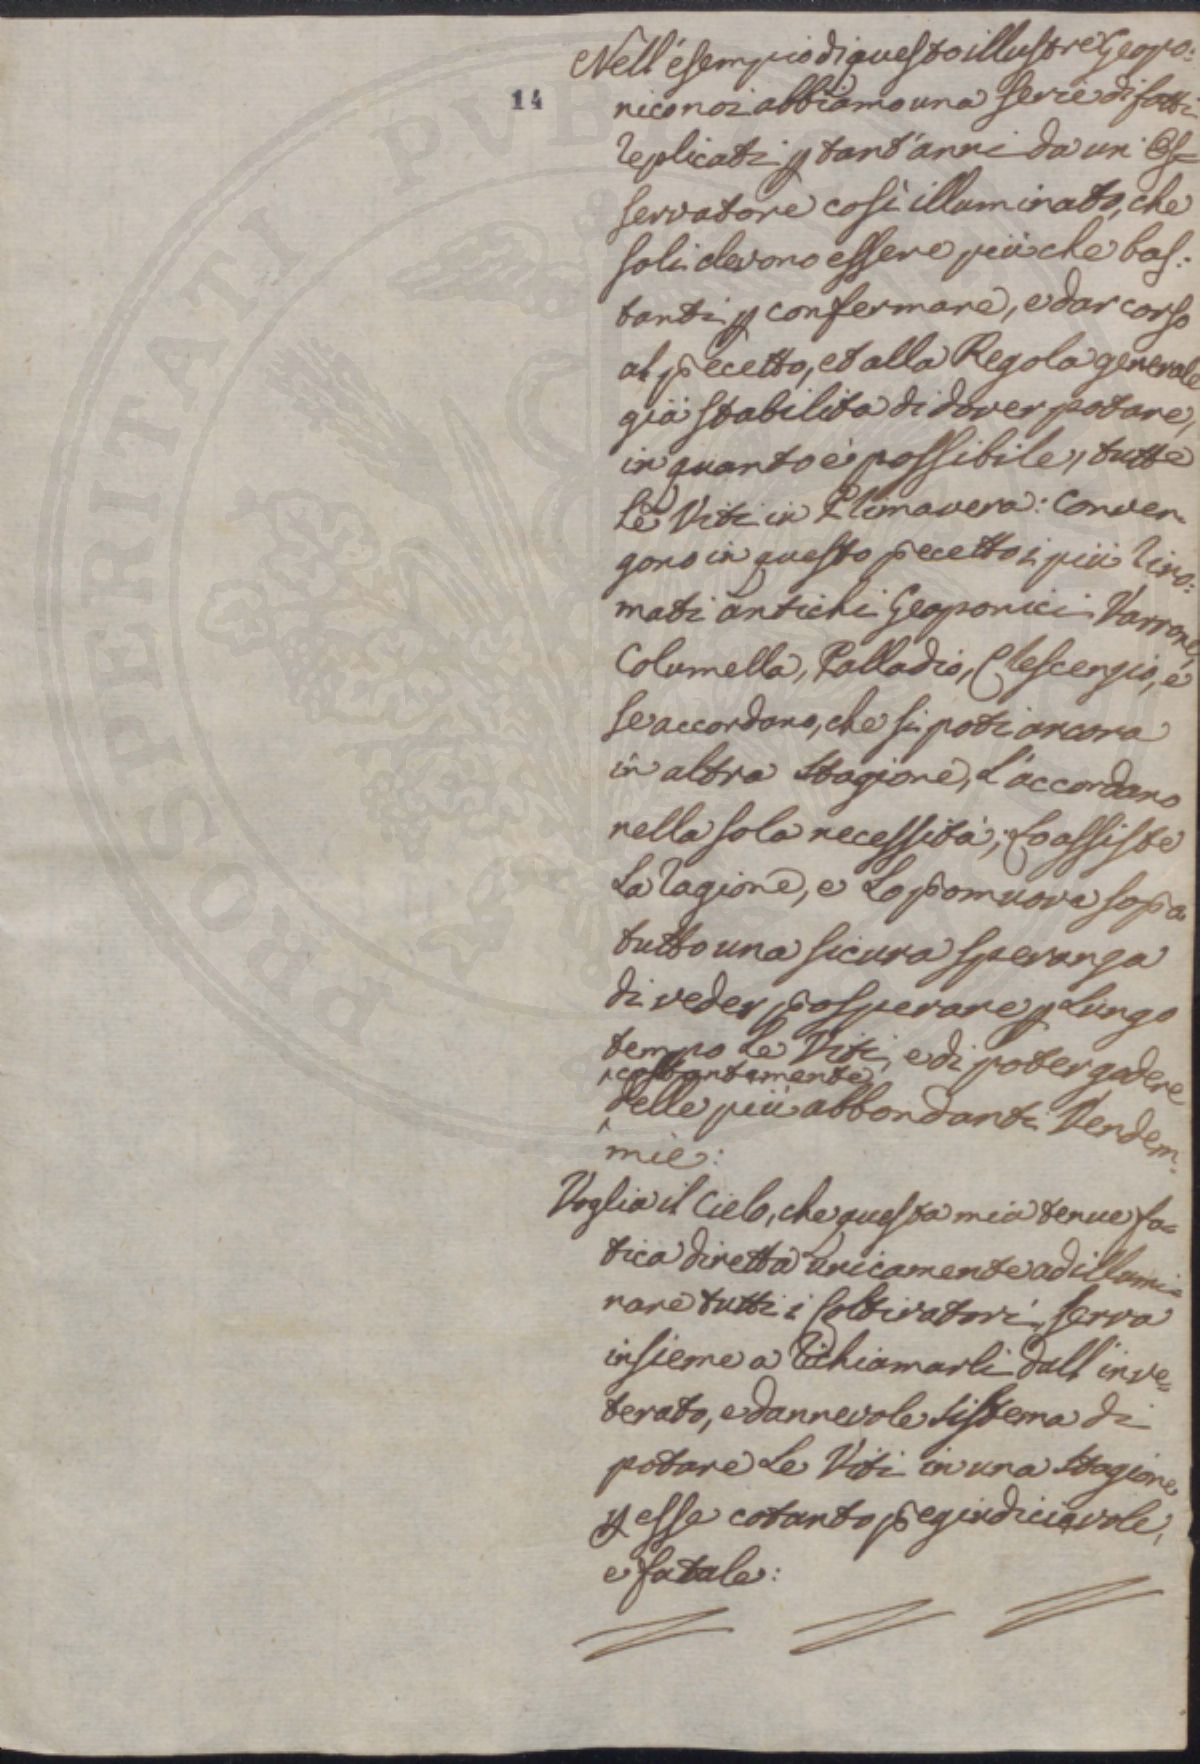 Nell'esempio di questo illustre Geopo:
14
nico noi abbiamo una serie di fatti
replicati p tant'anni da un Os=
servatore così illuminato, che
soli devono essere più che bas:
tanti p confermare, e dar corso
al pecetto, et alla Regola generale
già stabilita di dover potare,
in quanto è possibile, tutte
le Viti in Primavera: Conven=
gono in questo pecetto i più rino:
mati antichi Geoponici Varrone,
Columella, Palladio, Crescenzio, e
se accordano, che si poti ancora
in altra stagione, l'accordano
nella sola necessità; Lo assiste
La ragione, e Lo pomuova sopa
tutto una sicura speranza
di veder posperare p Lungo
tempo Le Viti, e di poter godere
costantemente
delle più abbondanti Vendem=
mie:
Voglia il Cielo, che questa mia tenue fa=
tica diretta unicamente ad illumi=
nare tutti i Coltivatori, serva
insieme a richiamarli dall'inve=
terato, e dannevole sistema di
potare Le Viti in una stagione
p esse cotanto pegiudicievole,
e fatale:
PROSPERITATI PVBL